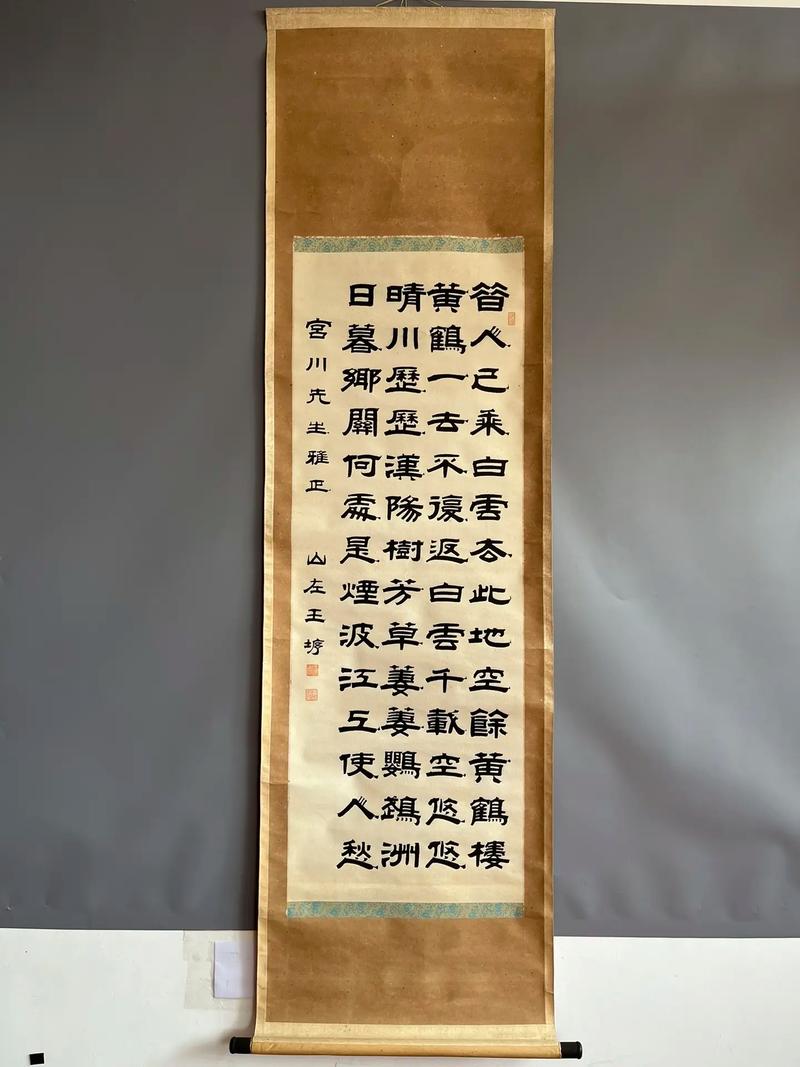 昔人已乘白雲去此地空餘黃鶴樓
黃鶴一去不復返白雲千載空悠悠
晴川歷歷漢陽樹芳草萋萋鸚鵡洲
日暮鄉關何處是煙波江上使人愁
宮川先生雅正
山左王垿